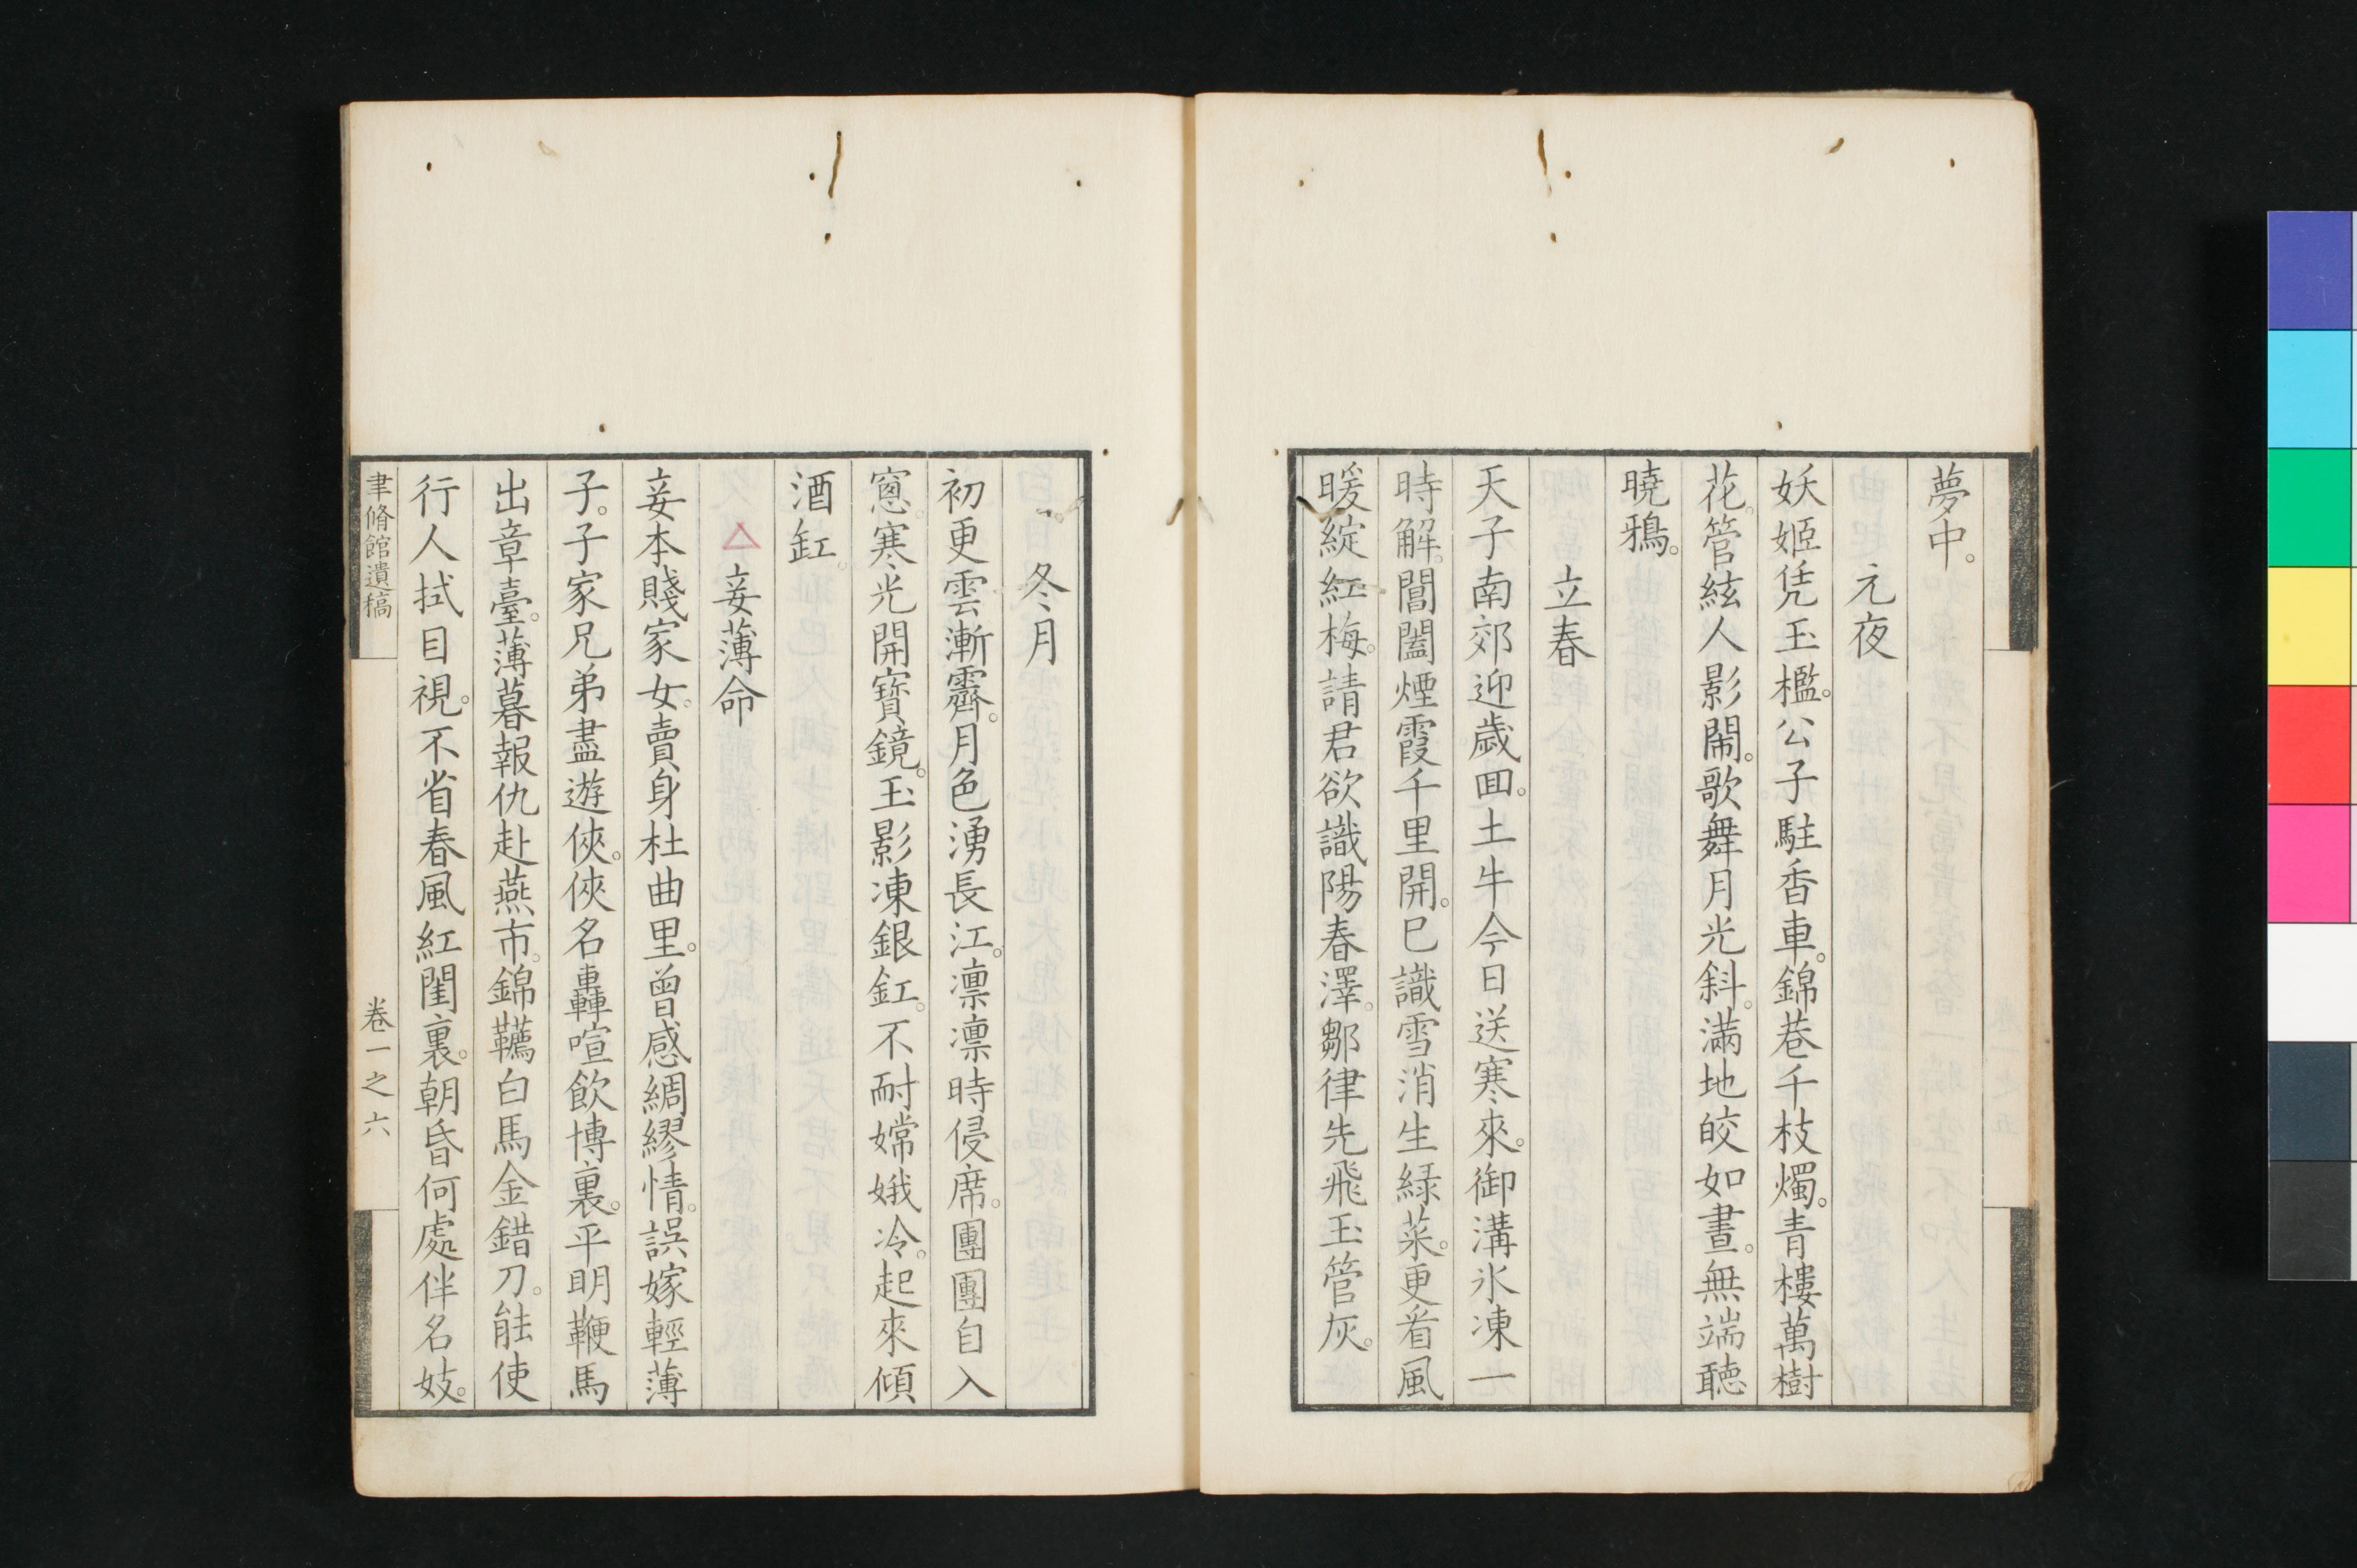 夢中。
元夜
妖姬凭玉檻。公子駐香車。錦巷千枝燭。青樓萬樹
花。管絃人影鬧。歌舞月光斜。滿地皎如晝。無端聽
曉鴉。
立春
天子南郊迎歲囬。土牛今日送寒來。御溝氷凍一
時解。閶闔煙霞千里開。已識雪消生緑菜。更看風
暖綻紅梅。請君欲識陽春澤。鄒律先飛玉管灰。
冬月
初更雲漸霽。月色湧長江。凛凛時侵席。團團自入
窻。寒光開寳鏡。玉影凍銀釭。不耐嫦娥冷。起來傾
酒缸。
△妾薄命
妾本賤家女。賣身杜曲里。曾感綢繆情。誤嫁輕薄
子。子家兄弟盡遊俠。俠名轟喧飲博裏。平明鞭馬
出章臺。薄暮報仇赴燕市。錦韉白馬金錯刀。能使
行人拭目視。不省春風紅閨裏。朝昏何處伴名妓。
聿脩館遺稿
卷一之六